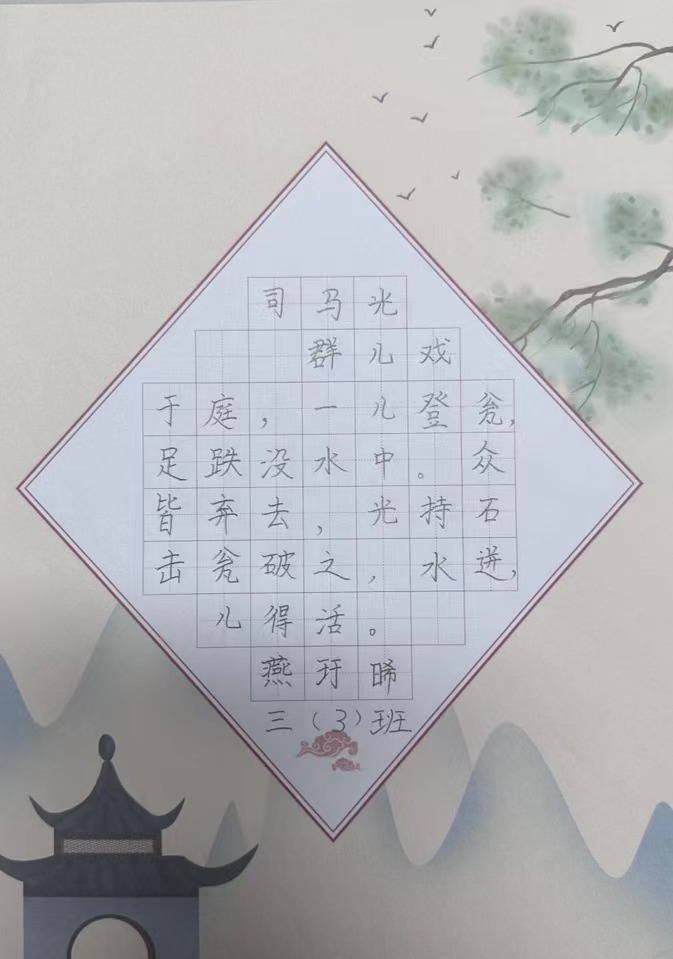 司马光
群儿戏
于庭，一儿登瓮，
足跌没水中。众
皆弃去，光持石
击瓮破之，水迸，
儿得活。
燕玗晞
三（3）班